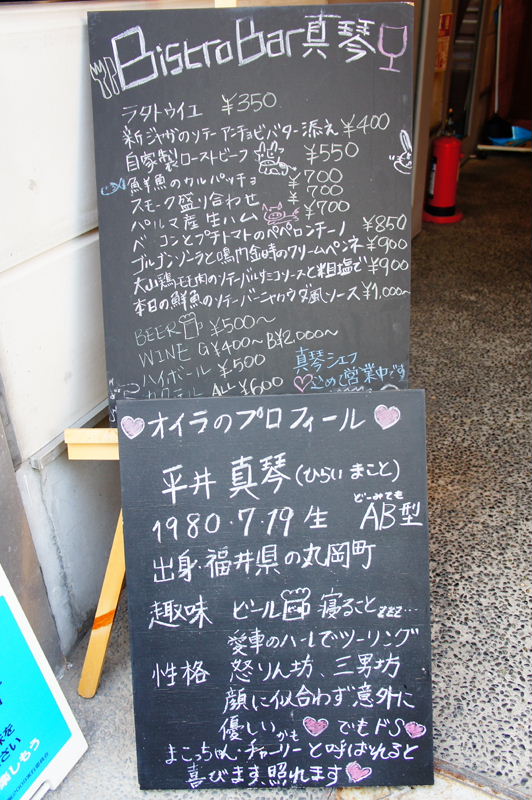 BistroBar真琴
ラタトウイユ ¥350
新ジャガのソテーアンチョビバター添え ¥400
自家製ローストビーフ ¥550
鮮魚のカルパッチョ ¥700
スモーク盛り合わせ ¥700
パルマ産生ハム ¥700
ベーコンとプチトマトのペペロンチーノ ¥850
ゴルゴンゾーラと鳴門金時のクリームペンネ ¥900
大山鶏モモ肉のソテーバルサミコソースと粗塩で ¥900
本日の鮮魚のソテーバーニャカウダ風ソース ¥1,000〜
BEER ¥500〜
WINE G¥400〜 B¥2,000〜
ハイボール ¥500
カクテル ALL ¥600
真琴シェフ
営業中です
オイラのプロフィール
平井 真琴(ひらい まこと)
1980・7・19生 どーみても AB型
出身・福井県の丸岡町
趣味 ビール 寝ることzzz…
愛車のハーレでツーリング
性格 怒りん坊、三男坊
顔に似合わず意外に
優しいかも でもドS
まこっちゃん・チャーリーと呼ばれると
喜びます 照れます